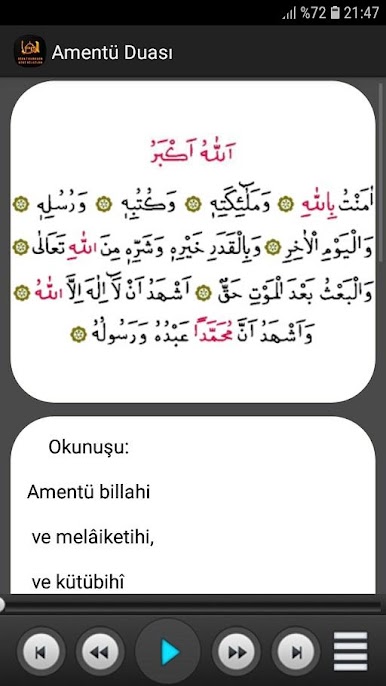 %72 21:47
Amentü Duası
اَللّٰهُ اَكْبَرُ
اٰمَنْتُ بِاللّٰهِ ۞ وَمَلٰٓئِكَتِهٖ ۞ وَكُتُبِهٖ ۞ وَرُسُلِهٖ ۞
وَالْيَوْمِ الْاٰخِرِ ۞ وَبِالْقَدَرِ خَيْرِهٖ وَشَرِّهٖ مِنَ اللّٰهِ تَعَالٰى
وَالْبَعْثُ بَعْدَ الْمَوْتِ حَقٌّ ۞ اَشْهَدُ اَنْ لَٓا اِلٰهَ اِلَّا اللّٰهُ ۞
وَاَشْهَدُ اَنَّ مُحَمَّدًا عَبْدُهُ وَرَسُولُهُ ۞
Okunuşu:
Amentü billahi
ve melâiketihi,
ve kütübihî